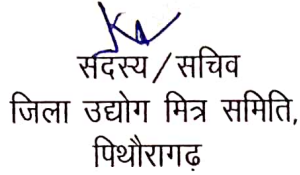 सदस्य/सचिव
जिला उद्योग मित्र समिति,
पिथौरागढ़